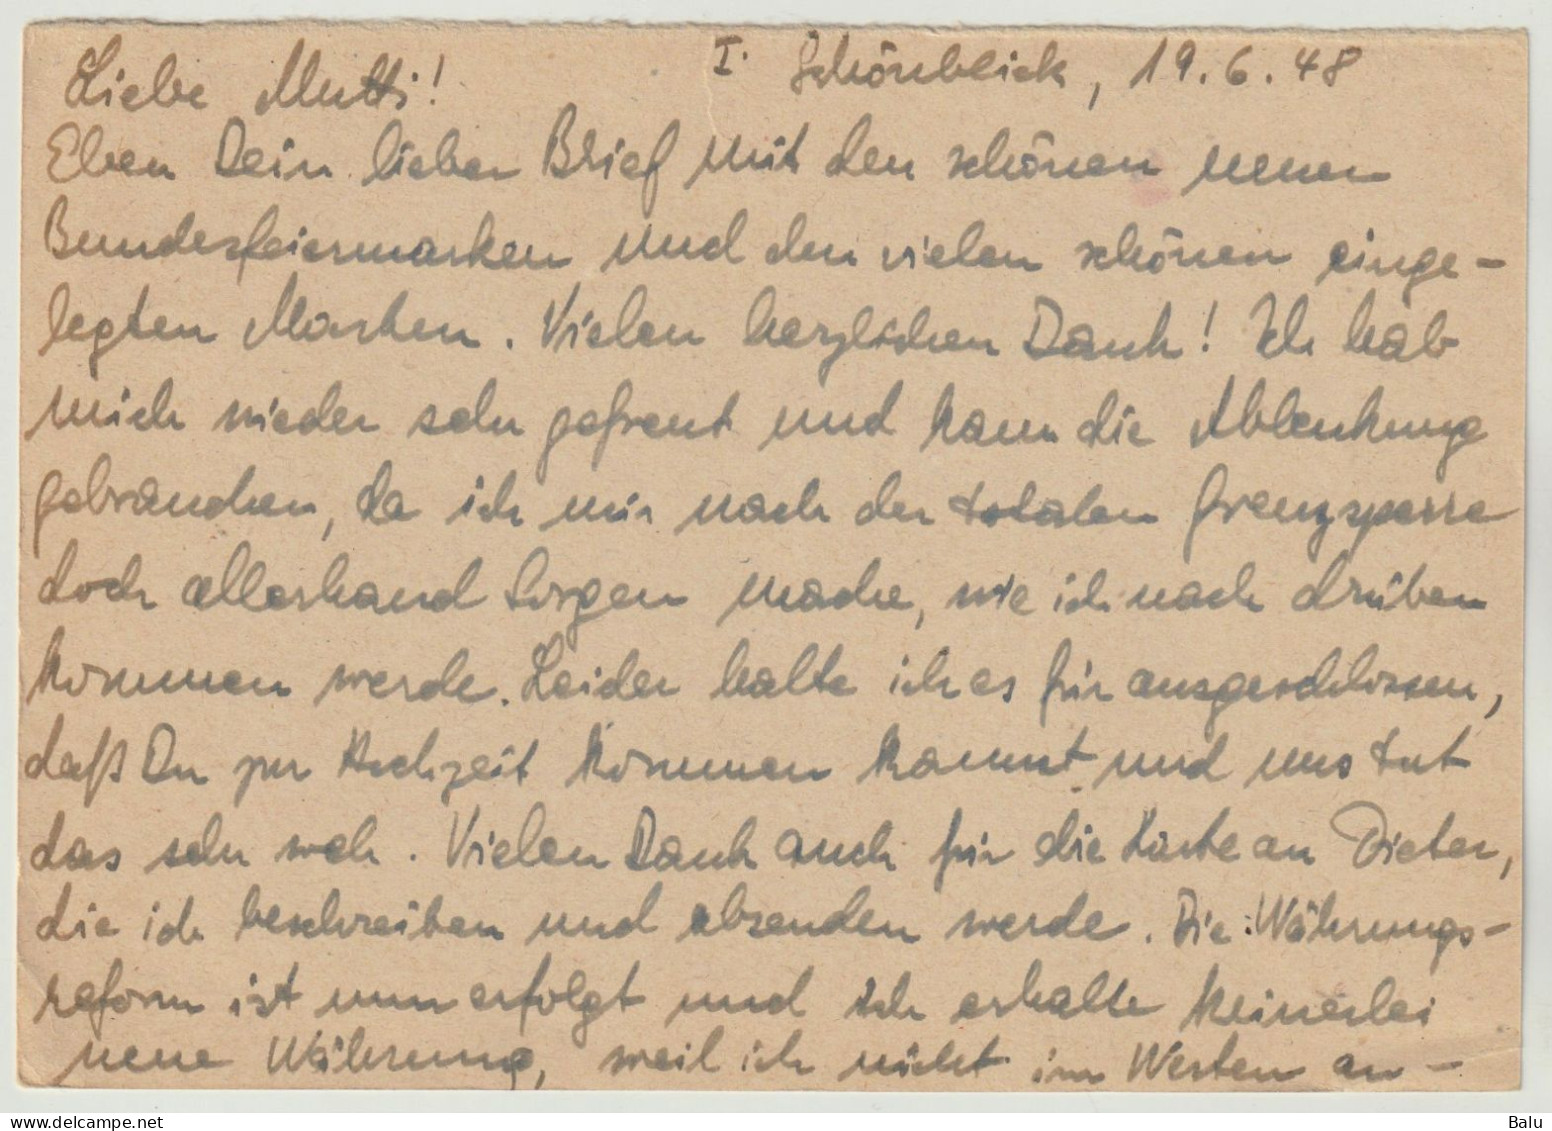 I. Schönblick, 19.6.48
Liebe Mutti!
Eben Dein lieber Brief mit den schönen neuen
Bundesfeiermarken und den vielen schönen einge-
legten Marken. Vielen herzlichen Dank! Ich hab
mich wieder sehr gefreut und kann die Ablenkung
gebrauchen, da ich mir nach der totalen Grenzsperre
doch allerhand Sorgen mache, wie ich nach drüben
kommen werde. Leider halte ich es für ausgeschlossen,
daß Du zur Hochzeit kommen kannst und uns tut
das sehr weh. Vielen Dank auch für die Karte an Dieter,
die ich beschreiben und absenden werde. Die Währungs-
reform ist nun erfolgt und ich erhalte keinerlei
neue Währung, weil ich nicht im Westen an-
© www.delcampe.net
Balu